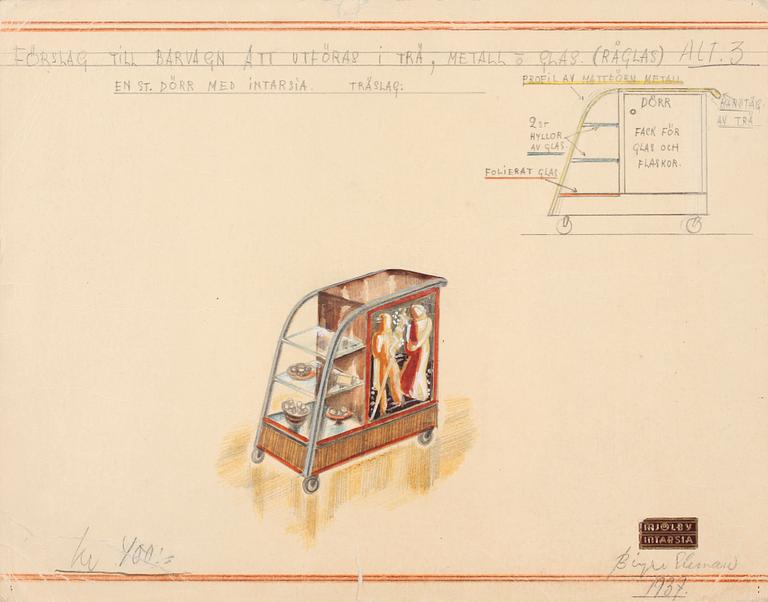 FÖRSLAG TILL BARVAGN ATT UTFÖRAS I TRÄ, METALL O GLAS. (RÅGLAS) ALT. 3
EN ST. DÖRR MED INTARSIA. TRÄSLAG:
PROFIL AV MATTFÖRN METALL
DÖRR
HANDTAG
AV TRÄ
2 ST
HYLLOR
AV GLAS.
FACK FÖR
GLAS OCH
FLASKOR.
FOLIERAT GLAS
MJÖLBY
INTARSIA
Kr 400:=
Birger Ekman
1937.